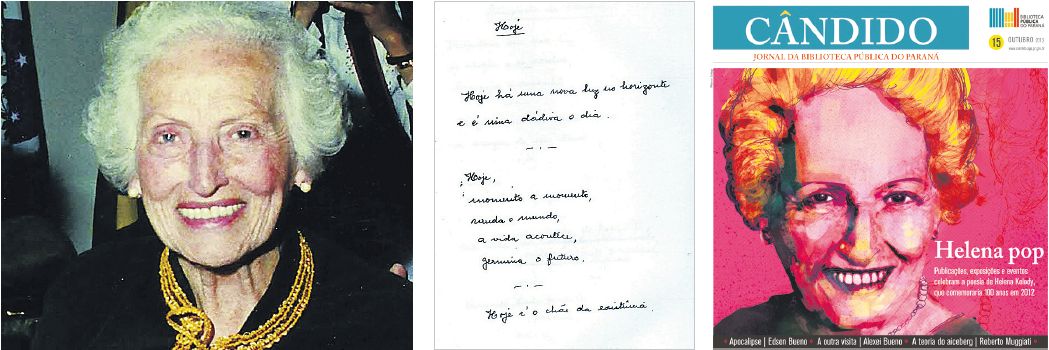 Hoje
Hoje há uma nova luz no horizonte
e é uma dádiva o dia.
Hoje,
momento a momento,
muda o mundo,
a vida acontece,
germina o futuro.
Hoje é o chão da existência.
CÂNDIDO
JORNAL DA BIBLIOTECA PÚBLICA DO PARANÁ
BIBLIOTECA
PÚBLICA
DO PARANÁ
15 OUTUBRO
Helena pop
Publicações, exposições e eventos
celebram a poesia de Helena Kolody,
que comemoraria 100 anos em 2012
• Apocalipse | Edson Bueno • A outra visita | Alexei Bueno • A teoria do aiceberg | Roberto Muggiati •